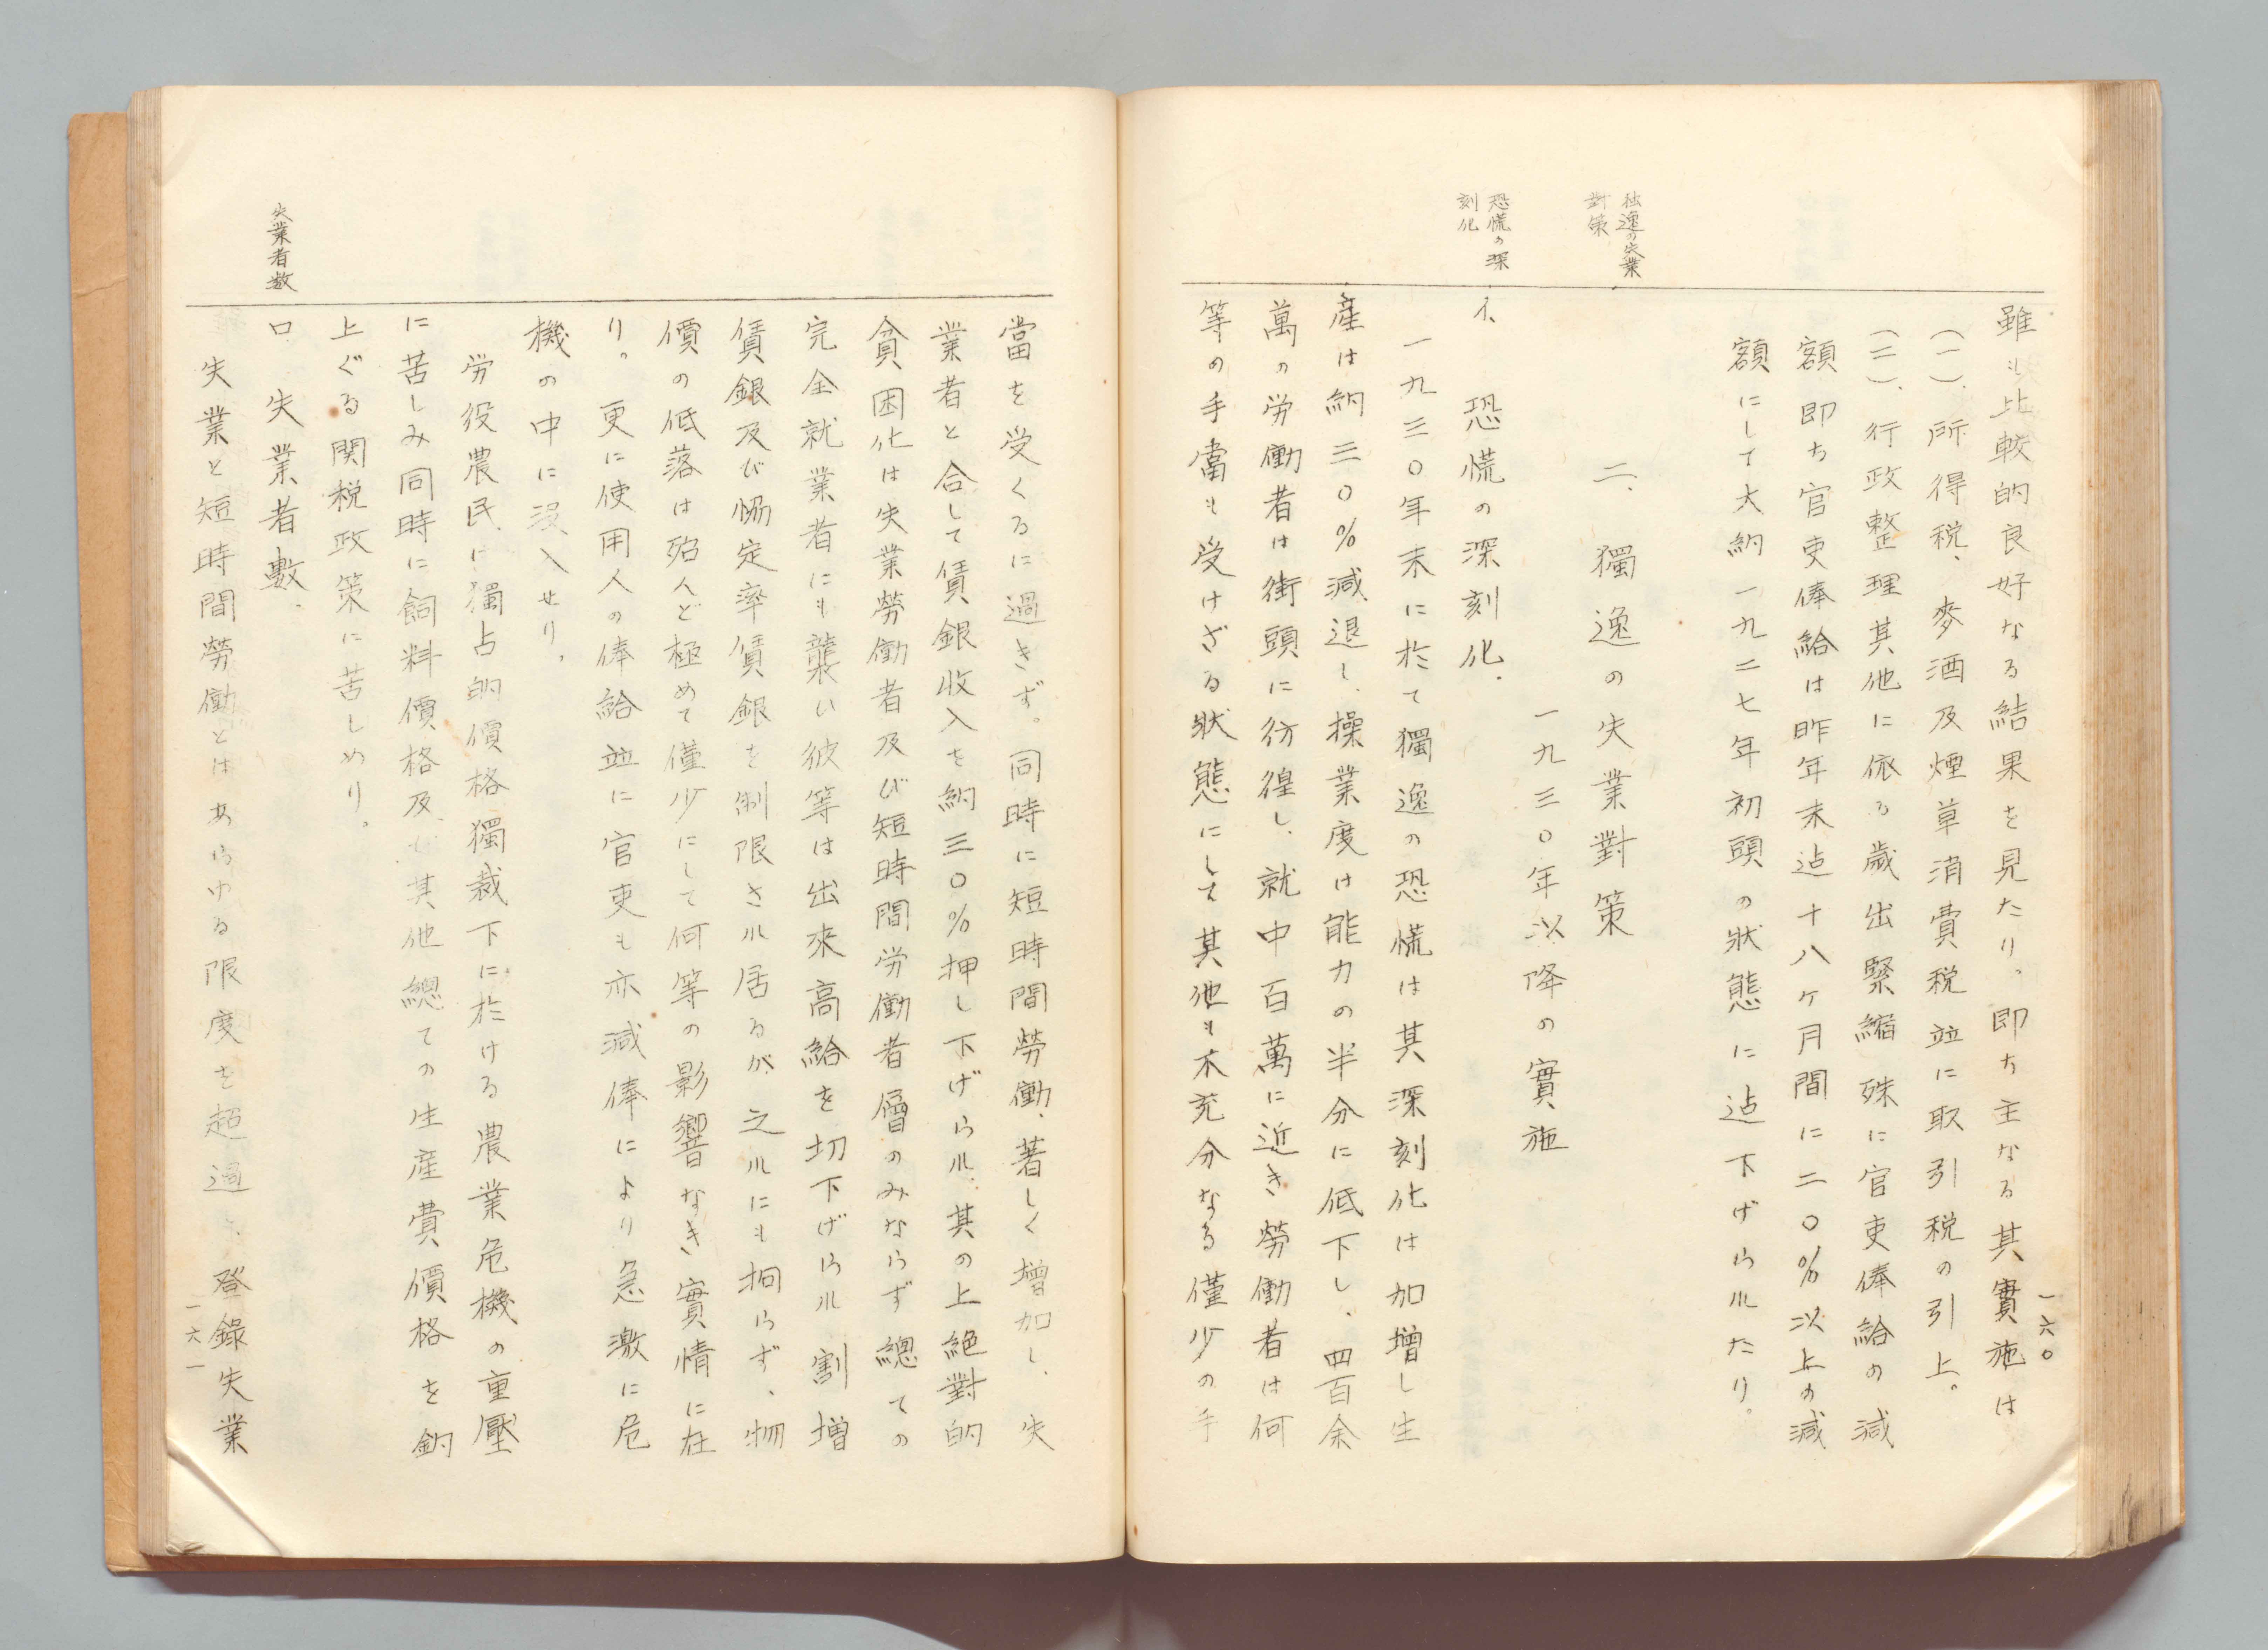 一六〇
雖も比較的良好なる結果を見たり。即ち主なる其實施は
(一)、所得税、麥酒及煙草消費税並に取引税の引上。
(二)、行政整理其他に依る歳出緊縮殊に官吏俸給の減
額即ち官吏俸給は昨年末迠十八ヶ月間に二〇%以上の減
額にして大約一九二七年初頭の狀態に迠下げられたり。
独逸の失業
對策
二、獨逸の失業對策
一九三〇年以降の實施
恐慌の深
刻化
イ、恐慌の深刻化.
一九三〇年末に於て獨逸の恐慌は其深刻化は加増し生
産は納三〇%減退し、操業度は能力の半分に低下し、四百余
萬の労働者は街頭に彷徨し、就中百萬に近き勞働者は何
等の手當も受けざる狀態にして其他も不充分なる僅少の手
當を受くるに過きず。同時に短時間勞働、著しく増加し、失
業者と合して賃銀收入を納三〇%押し下げられ、其の上絶對的
貧困化は失業勞働者及び短時間労働者層のみならず總ての
完全就業者にも襲い彼等は出來高給を切下げられ割増
賃銀及び恊定率賃銀を制限され居るが、之れにも拘らず、物
價の低落は殆んど極めて僅少にして何等の影響なき實情に在
り。更に使用人の俸給並に官吏も亦減俸により急激に危
機の中に沒入せり。
労役農民は獨占的價格獨裁下に於ける農業危機の重壓
に苦しみ同時に飼料價格及も其他總ての生産費價格を釣
上ぐる関税政策に苦しめり。
失業者数
ロ、失業者數.
失業と短時間勞働とはあらゆる限度を超過し、登錄失業
一六一